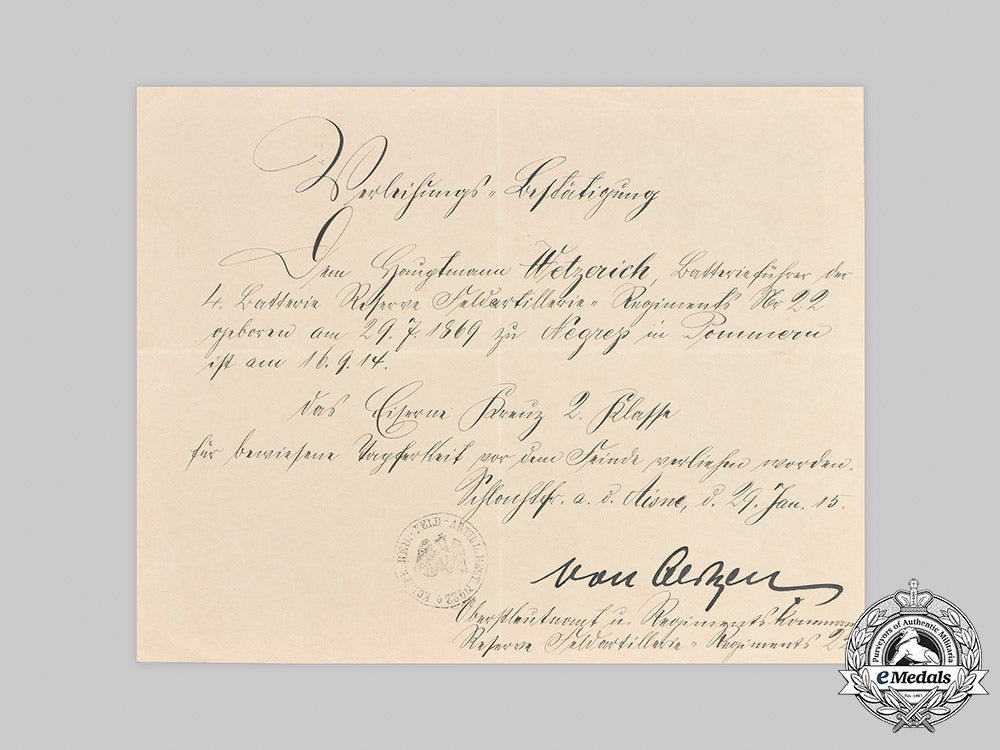 Verleihungs-Bestätigung
Dem Hauptmann Wetzerich, Batterieführer der
4. Batterie Reserve Feldartillerie-Regiments Nr 22
geboren am 29.7.1869 zu Negrep in Pommern
ist am 16.9.14.
das Eiserne Kreuz 2. Klasse
für bewiesene Tapferkeit vor dem Feinde verliehen worden.
a. d. Aisne, d. 29. Jan. 15.
von Oertzen
Oberstleutnant u. Regiments Komman
Reserve Feldartillerie-Regiments 22
RES. FELD-ARTILL.
Purveyors of Authentic Militaria
eMedals